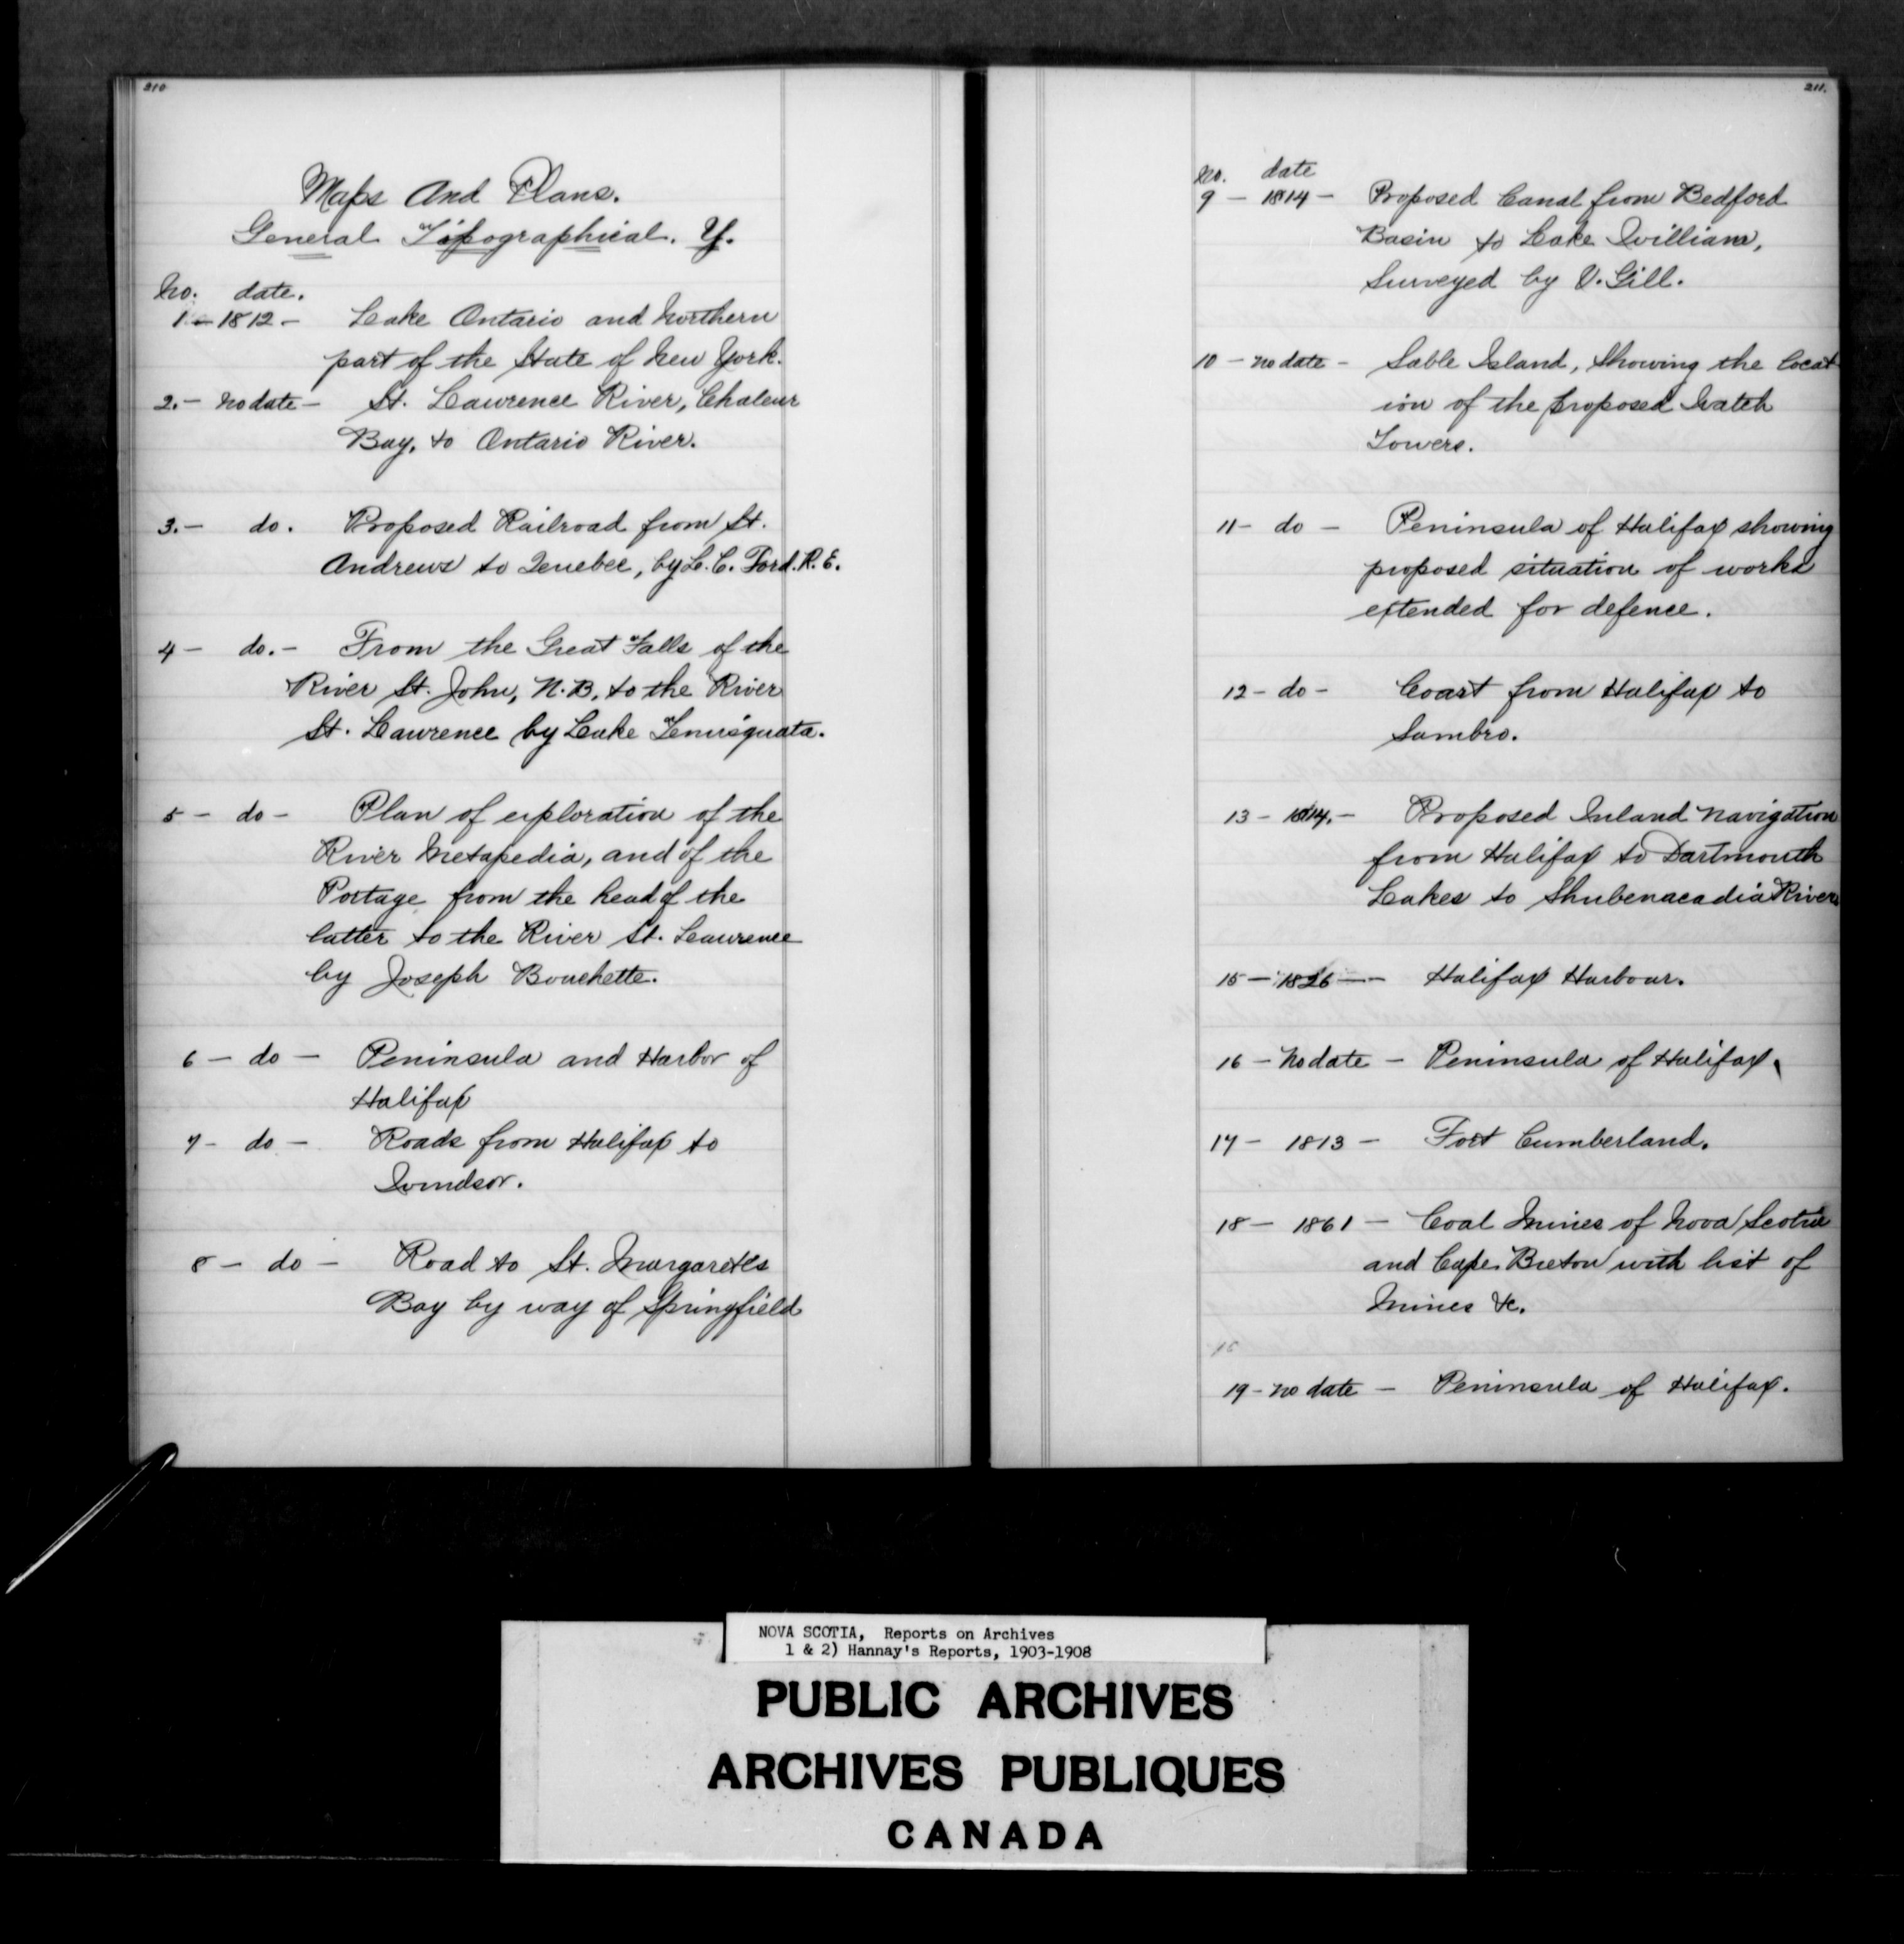 210
Maps and Plans.
General Topographical. Y.
No. date.
1 - 1812 - Lake Ontario and Northern
part of the State of New York.
2. - No date - St. Lawrence River, Chaleur
Bay, to Ontario River.
3. - do. Proposed Railroad from St.
Andrews to Quebec, by L. C. Ford. R. E.
4 - do. - From the Great Falls of the
River St. John, N. B. to the River
St. Lawrence by Lake Temisquata.
5 - do - Plan of exploration of the
River Metapedia, and of the
Portage from the head of the
latter to the River St. Lawrence
by Joseph Bouchette.
6 - do - Peninsula and Harbor of
Halifax
7 - do - Roads from Halifax to
Windsor.
8 - do - Road to St. Margaretes
Bay by way of Springfield
211.
No. date
9 - 1814 - Proposed Canal from Bedford
Basin to Lake William,
Surveyed by V. Gill.
10 - no date - Sable Island, showing the locat
ion of the proposed Watch
Towers.
11 - do - Peninsula of Halifax showing
proposed situation of works
extended for defence.
12 - do - Coast from Halifax to
Sambro.
13 - 1814. - Proposed Inland Navigation
from Halifax to Dartmouth
Lakes to Shubenacadia River
15 - 1826 - - Halifax Harbour.
16 - No date - Peninsula of Halifax.
17 - 1813 - Fort Cumberland.
18 - 1861 - Coal Mines of Nova Scotia
and Cape Breton with list of
Mines &c.
15
19 - no date - Peninsula of Halifax.
NOVA SCOTIA, Reports on Archives
1 & 2) Hannay's Reports, 1903-1908
PUBLIC ARCHIVES
ARCHIVES PUBLIQUES
CANADA